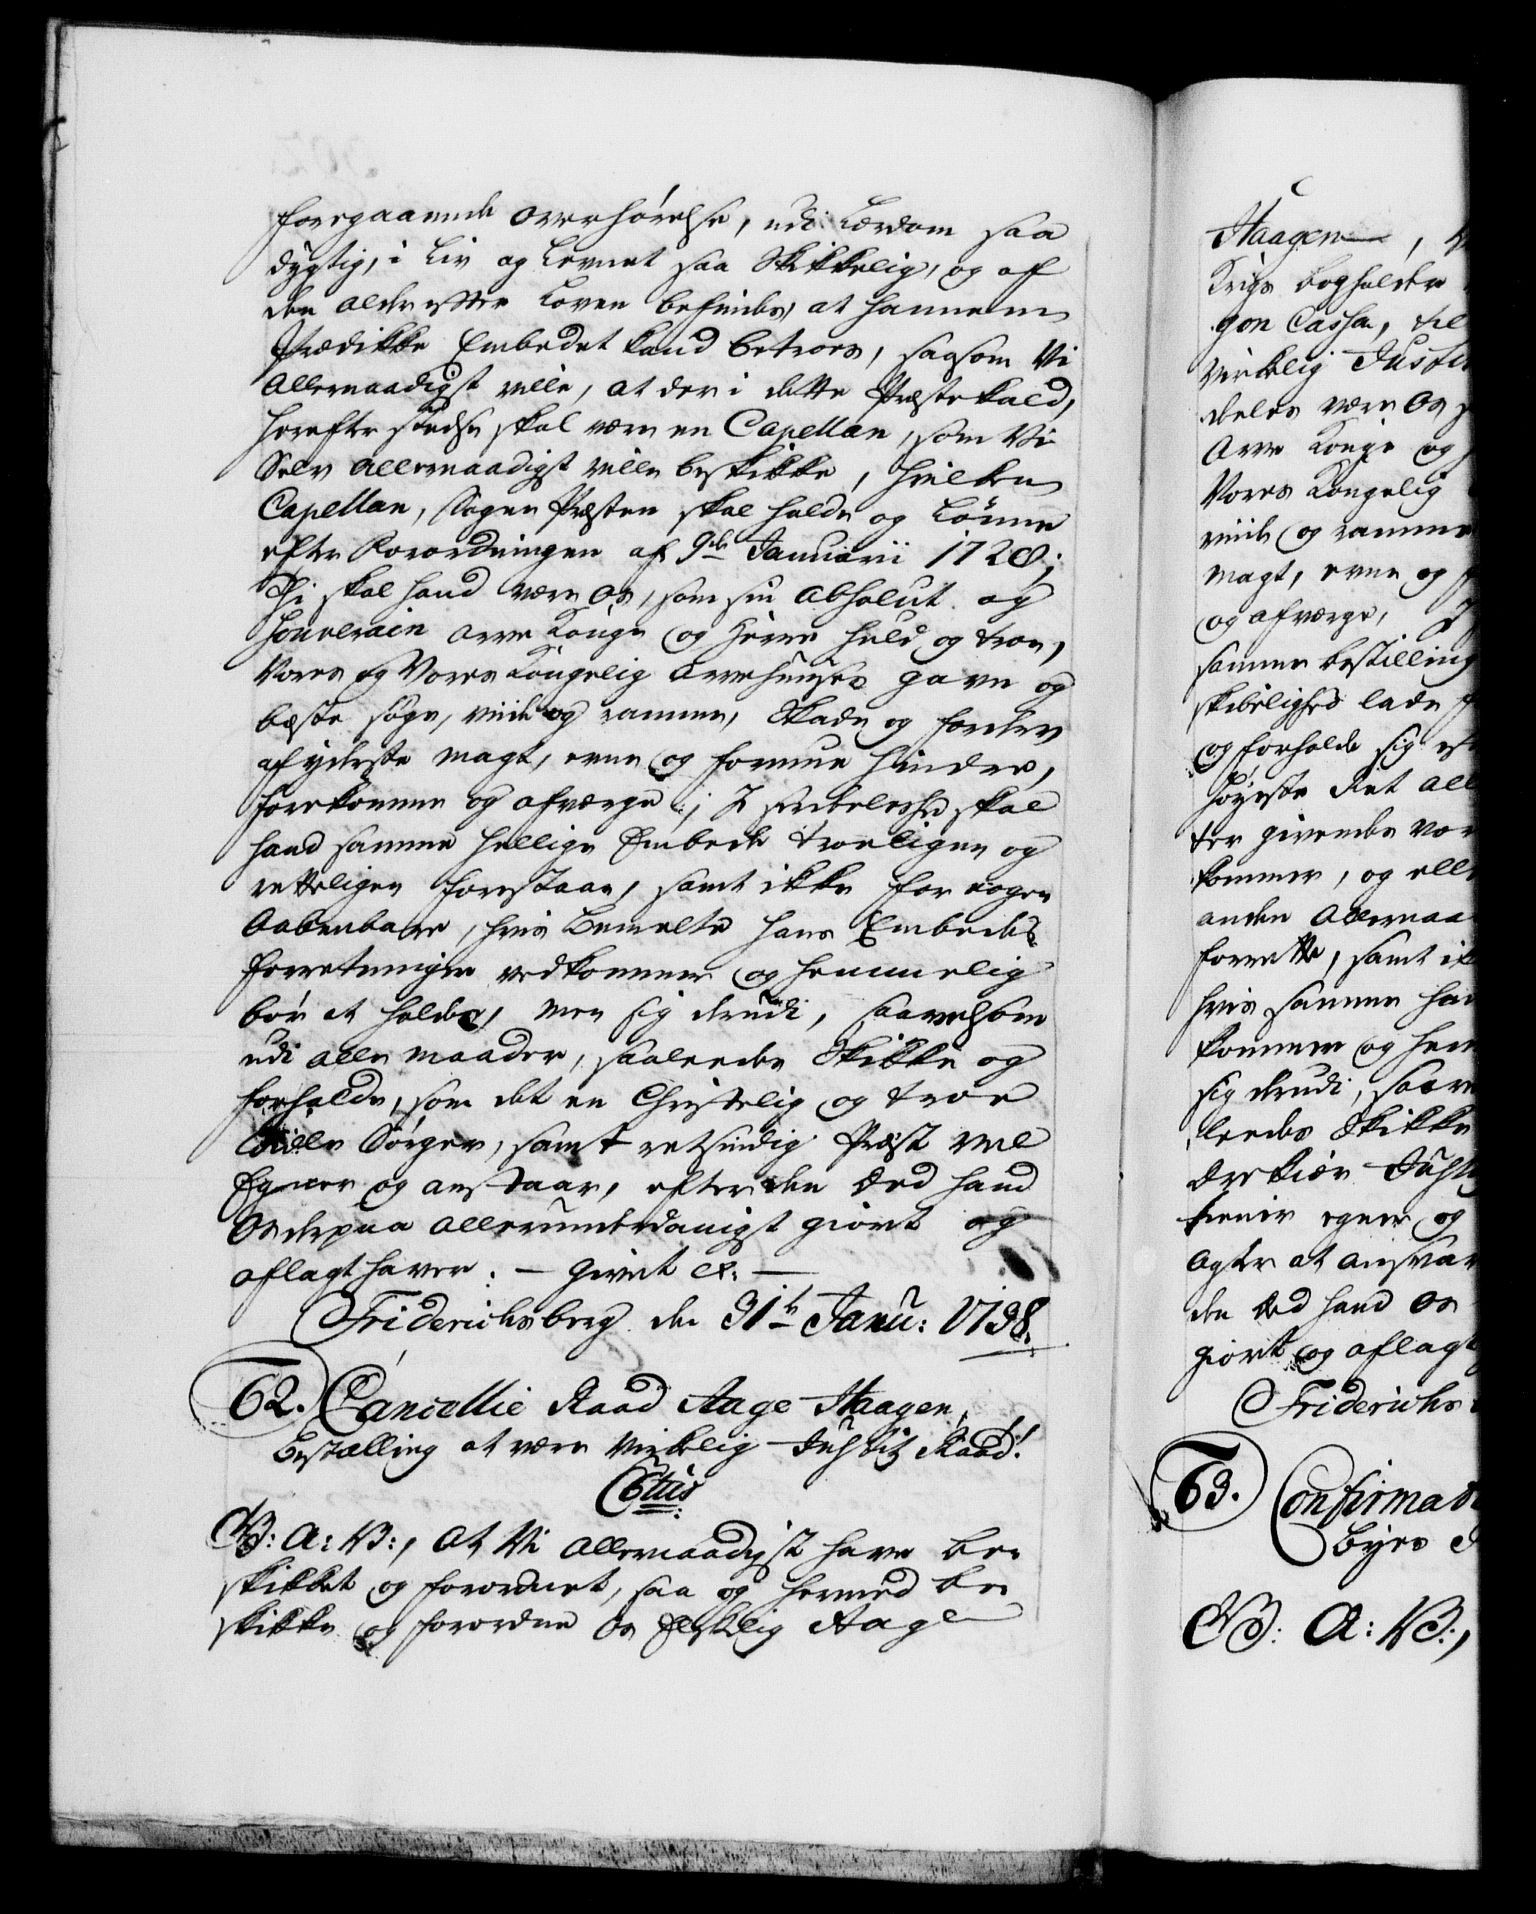 foregaaende Overhørelse, udi Lærdom saa
dygtig, i Liv og Levnet saa Skikkelig, og af
den alder efter Loven befindes, at hannem
Prædikke Embedet kand betroes, saasom Vi
Allernaadigst ville, at der i dette Præstekald,
herefter stedse skal være en Capellan, som Vi
Selv allernaadigst ville beskikke, hvilken
Capellan, Sogne Præsten skal holde og Lønne
efter Forordningen af 9de Januarii 1728;
Thi skal hand være Os, som sin absolut og
Souverain arve Konge og Herre huld og troe,
Vores og Vores Kongelig arvehuuses gavn og
bæste søge, viide og ramme, Skade og fordærv
af yderste magt, evne og formue hindre,
forekomme og afværge; I særdeleshed skal
hand samme hellige Embede troeligen og
retteligen forestaae, samt ikke for nogen
Aabenbare, hvis bemelte hans Embedes
forretninger vedkommer og hemmelig
bør at holdes, men sig derudi, saavelsom
udi alle maader, saaledes Skikke og
forholde, som det en Christelig og troe
Siæle Sørger, samt retsindig Præst vel
Egner og anstaar, efter den Eed hand
Os derpaa allerunderdanigst giort og
aflagt haver. — Givet &c. —
Friderichsberg den 31te Janu: 1738.
62. Cancellie Raad Aage Haagen,
Bestalling at være Virkelig Justitz Raad.
C6tus
G: A: V:, At Vi allernaadigst have be-
skikket og forordnet, saa og hermed be-
skikke og forordne Os Elskelig Aage
Haagen,
Krigs bogholder
gon Cassa, til
virkelig Justi
deles være Os
Arve Konge og
Vores Kongelig
viide og ramme
magt, evne og
og afværge,
samme bestilling
skikkelighed lade
og forholde sig
Høyeste Ret all
ter givendes vor
kommer, og ell
anden Allernaa
forrette, samt ik
hvis samme han
kommer og hem
sig derudi, saave
ledes Skikke
Justi
tienir egner og
agter at ansvar
den Eed hand Os
giort og aflagt
Friderichs
63. Confirmati
Byes
G: A: V:,